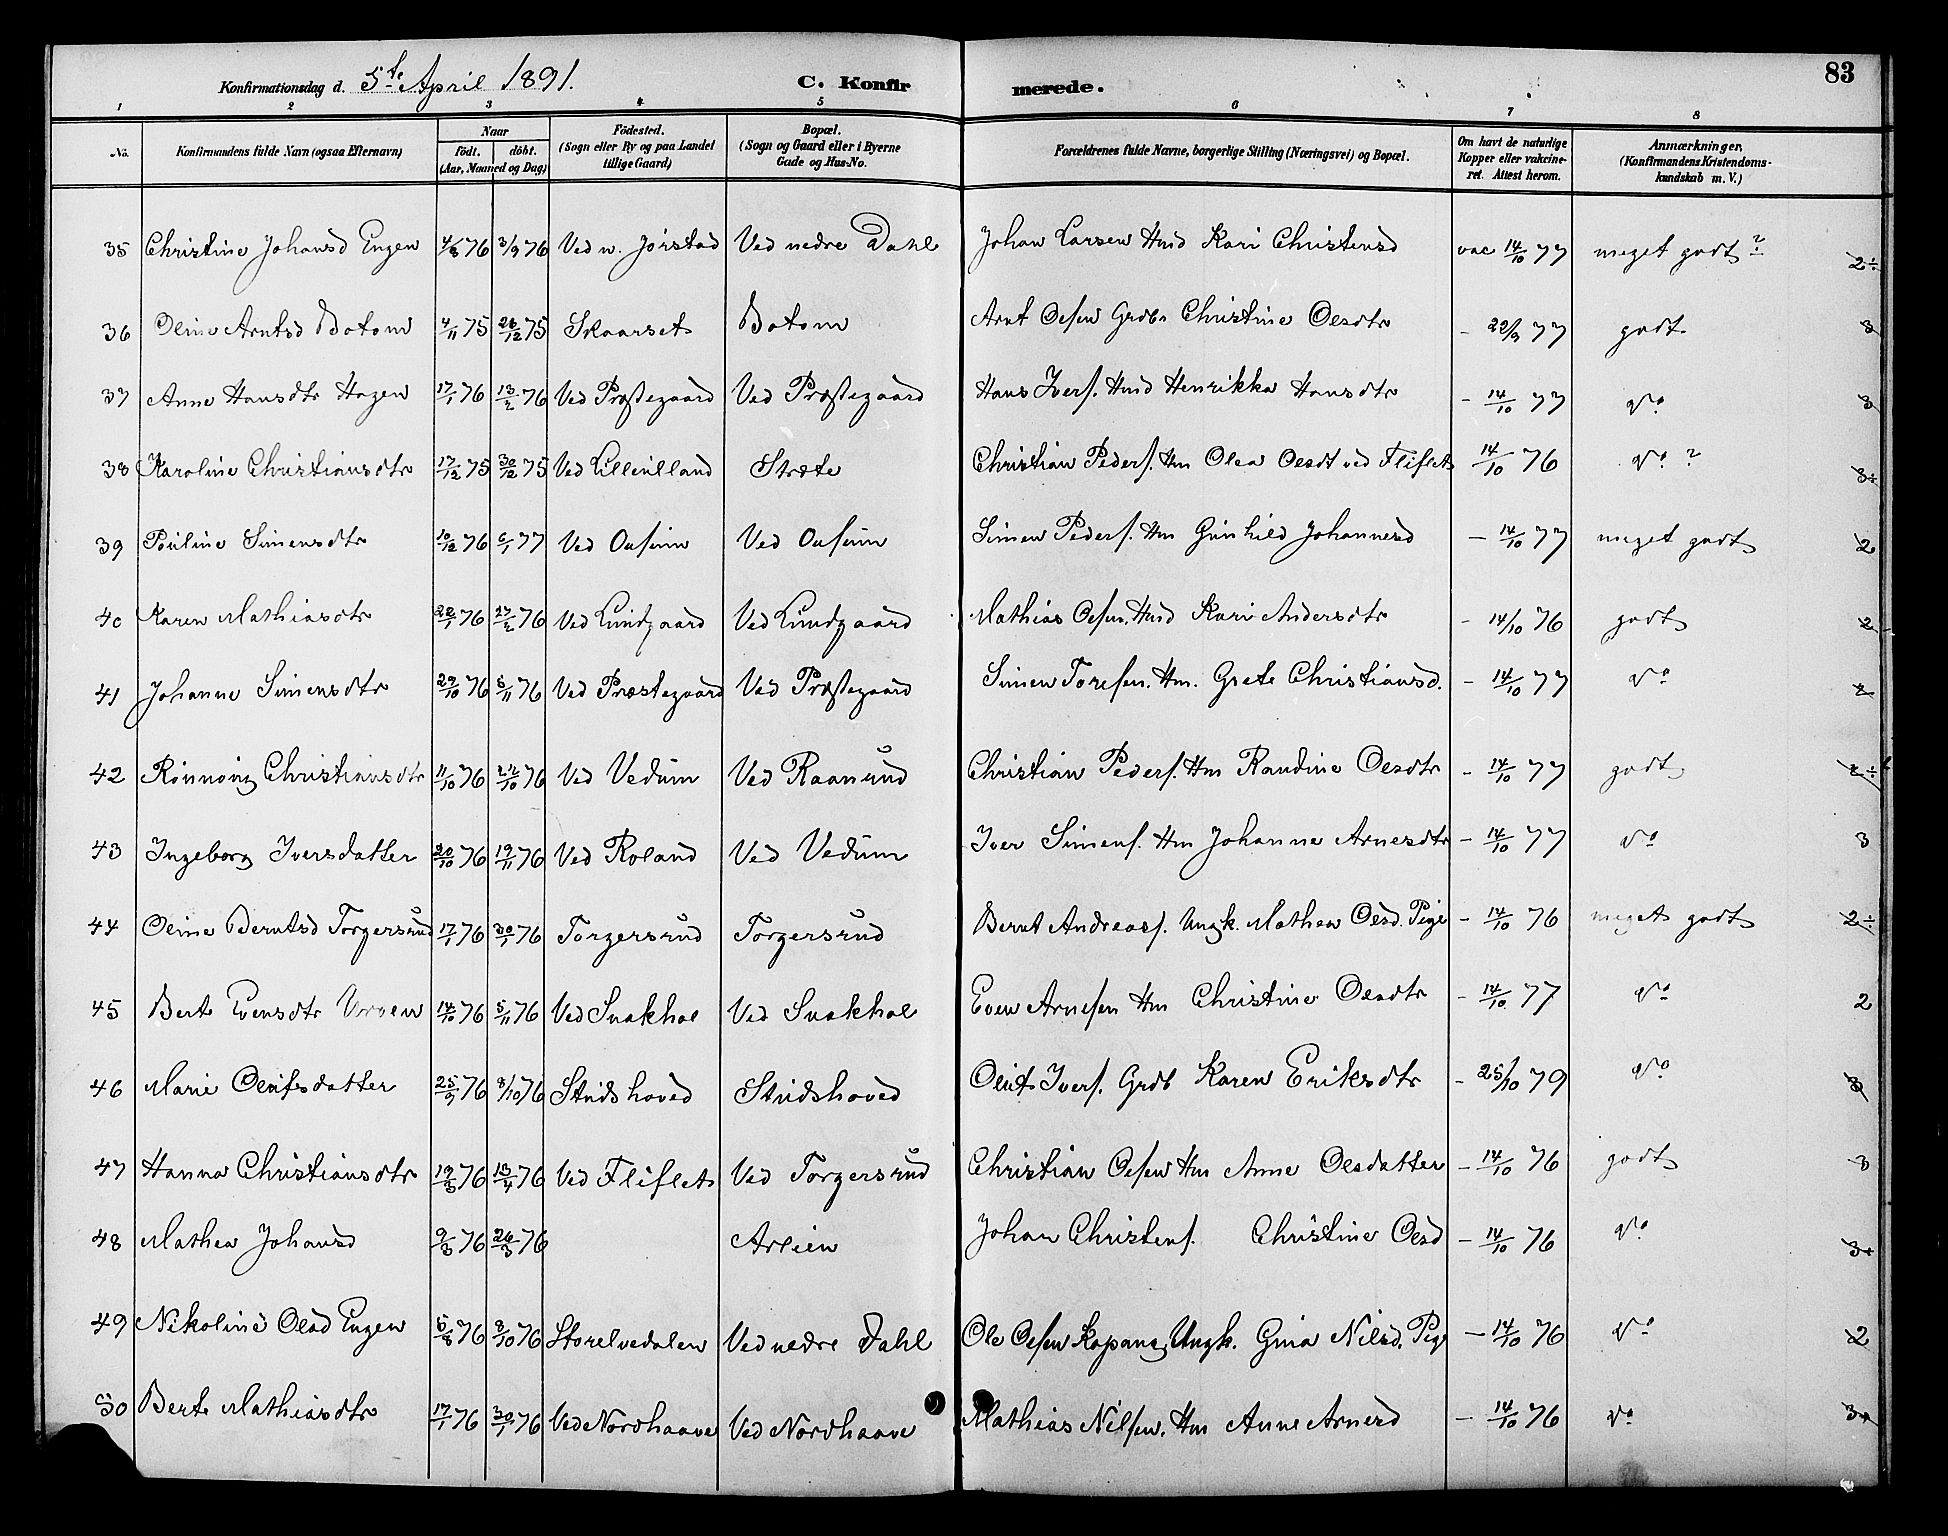 Konfirmationsdag d. 5te April 1891. C. Konfirmerede. 83
1 2 3 4 5 6 7 8
No. Konfirmandens fulde Navn (ogsaa Efternavn) Naar födt. döbt. (Aar, Maaned og Dag) Födested. (Sogn eller By og paa Landet tillige Gaard) Bopæl. (Sogn og Gaard eller i Byerne Gade og Hus-No. Forældrenes fulde Navne, borgerlige Stilling (Næringsvei) og Bopæl. Om havt de naturlige Kopper eller vakcineret. Attest herom. Anmærkninger, (Konfirmandens Kristendomskundskab m. V.)
35 Christine Johansd Engen 4/8 76 3/9 76 Ved n. Jörstad Ved nedre Dahl Johan Larsen Hmd Kari Christensd vac 14/10 77 meget godt ? 2÷
36 Oline Arntsd Botom 4/11 75 26/12 75 Skaarset Botom Arnt Olsen Grdbr Christine Olesdtr - 22/9 77 godt 3
37 Anne Hansdtr Hagen 17/1 76 13/2 76 Ved Præstegaard Ved Præstegaard Hans Ivers. Hmd Henrikka Hansdtr - 14/10 77 do 3
38 Karoline Christiansdtr 17/12 75 30/12 75 Ved Lilleulland Stræte Christian Peders. Hm Olea Olesdt ved Fliflet 14/10 76 do ? 3÷
39 Pauline Simensdtr 10/12 76 6/1 77 Ved Ousum Ved Ousum Simen Peders. Hm Gunhild Johannesd - 14/10 77 meget godt 2
40 Karen Mathiasdtr 22/1 76 27/2 76 Ved Lundgaard Ved Lundgaard Mathias Olsen. Hmd Kari Andersdtr - 14/10 76 godt 2
41 Johanne Simensdtr 29/10 76 5/11 76 Ved Præstegaard Ved Præstegaard Simen Toresen. Hm. Grete Christiansd. - 14/10 77 do
42 Rönnoug Christiansdtr 11/10 76 /10 76 Ved Vedum Ved Raanund Christian Peders. Hm Randine Olesdtr - 14/10 77 godt
43 Ingeborg Iversdatter 20/10 76 19/11 76 Ved Roland Ved Vedum Iver Simens. Hm Johanne Arnesdtr - 14/10 77 do 3
44 Oline Berntsd Torgersrud 17/1 76 30/1 76 Torgersrud Torgersrud Bernt Andreass. Ungk. Mathea Olesd. Pige - 14/10 76 meget godt 2÷
45 Berte Evensdtr 14/10 76 5/11 76 Ved Snakhol Ved Snakhol Even Arnesen Hm Christine Olesdtr - 14/10 77 do 2
46 Marie Olufsdatter 25/9 76 8/10 76 Studshoved Studshoved Oluf Ivers. Grdb Karen Eriksdtr - 25/10 79 do 3
47 Hanna Christiansdtr 19/3 76 17/4 76 Ved Fliflet Ved Torgersrud Christian Olsen Hm Anne Olesdatter - 14/10 76 godt 3
48 Mathea Johansd 9/3 76 26/3 76 Arlien Johan Christens. Christine Olesd - 14/10 76 do 3+
49 Nikoline Olesd Engen 5/8 76 8/10 76 Storelvedalen Ved nedre Dahl Ole Olsen Kopang, Ungk. Gina Nilsd. Pige - 14/10 76 do 2
50 Berte Mathiasdtr 17/1 76 30/1 76 Ved Nordhaave Ved Nordhaave Mathias Nilsen. Hm Anne Arnesd - 14/10 76 do 3+